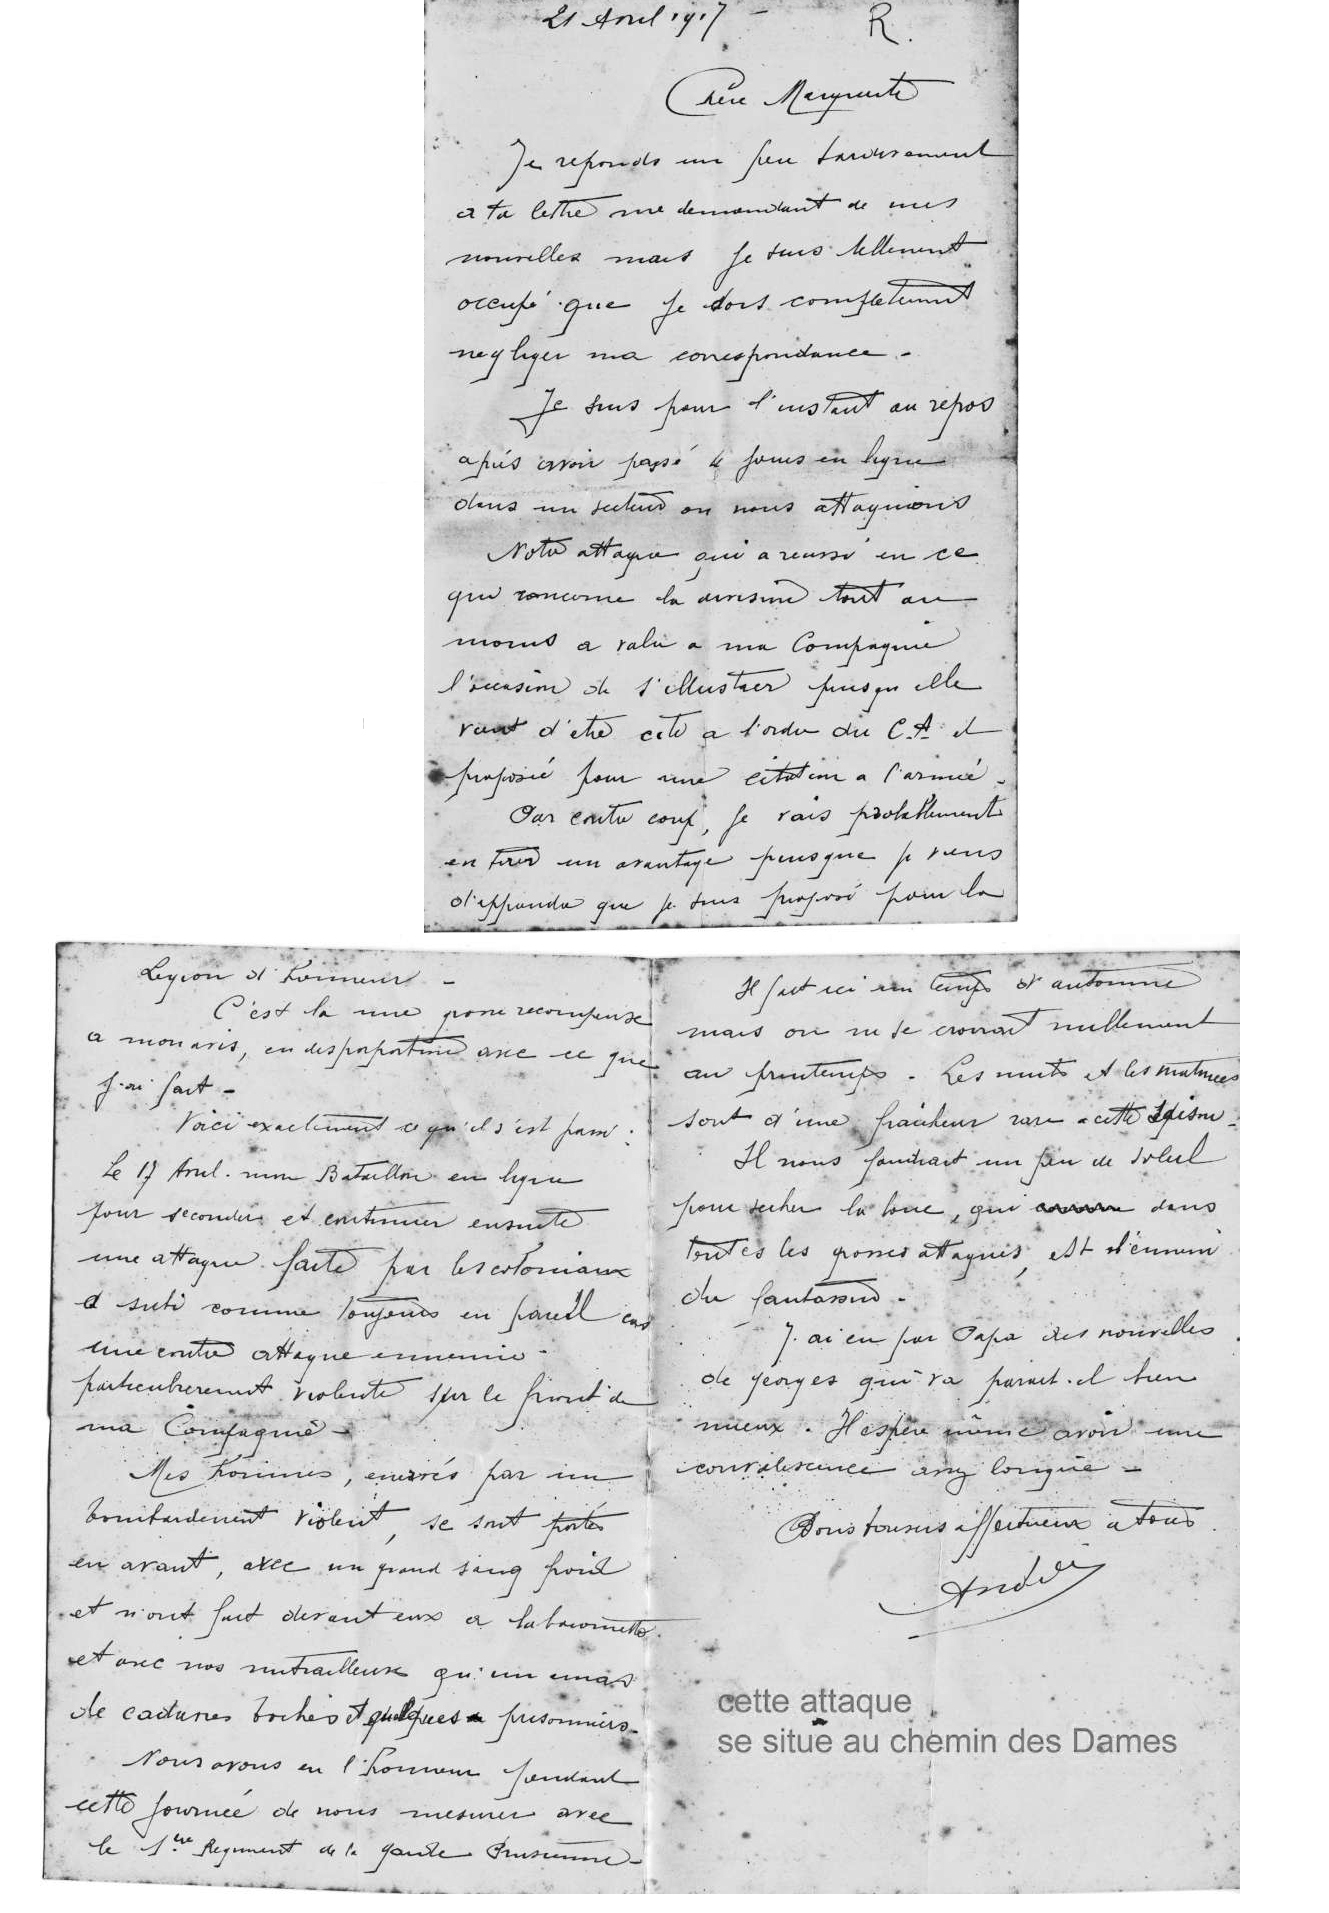 21 Avril 1917 - R.
Chère Marguerite
Je reponds un peu tardivement
a ta lettre me demandant de mes
nouvelles mais je suis tellement
occupé que je dois completement
negliger ma correspondance -
Je suis pour l'instant au repos
après avoir passé 4 jours en ligne
dans un secteur ou nous attaquions
Notre attaque qui a reussi en ce
qui concerne la division tout au
moins a valu a ma Compagnie
l'occasion de s'illustrer puisqu elle
vient d'etre cité a l'ordre du C.A. et
proposée pour une citation a l'armée -
Par contre coup, je vais probablement
en tirer un avantage puisque je viens
d'apprendre que je suis proposé pour la
Legion d'honneur -
C'est la une grosse recompense
a mon avis, en disproportion avec ce que
j'ai fait -
Voici exactement ce qu'il s'est passé :
Le 17 Avril mon Bataillon en ligne
pour seconder et continuer ensuite
une attaque faite par les coloniaux
a subi comme toujours en pareil cas
une contre attaque ennemie
particulierement violente sur le front de
ma Compagnie -
Mes hommes, enervés par un
bombardement violent, se sont portés
en avant, avec un grand sang froid
et n'ont fait devant eux a la baionnette
et avec nos mitrailleuses qu'un amas
de cadavres boches et quelques prisonniers -
Nous avons eu l'honneur pendant
cette journée de nous mesurer avec
le 1er Regiment de la garde Prussienne -
Il fait ici un temps d'automne
mais on ne se croirait nullement
au printemps - Les nuits et les matinées
sont d'une fraicheur rare a cette saison -
Il nous faudrait un peu de soleil
pour secher la boue, qui dans
toutes les grosses attaques, est l'ennemi
du fantassin -
J'ai eu par Papa des nouvelles
de Georges qui va parait-il bien
mieux. Il espère même avoir une
convalescence assez longue -
Bons baisers affectueux a tous
André
cette attaque
se situe au chemin des Dames